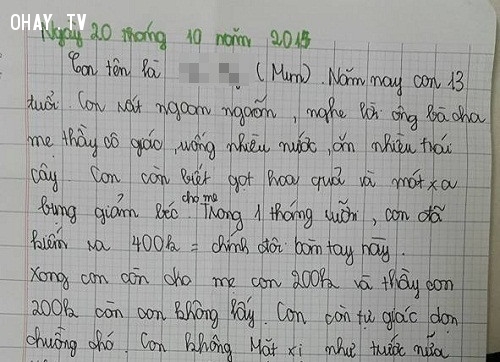 OHAY.TV
Ngày 20 tháng 10 năm 2015
Con tên là (Mum). Năm nay con 13
tuổi. Con rất ngoan ngoãn, nghe lời ông bà cha
mẹ thầy cô giáo, uống nhiều nước, ăn nhiều trái
cây. Con còn biết gọt hoa quả và mát xa
bụng giảm béo cho mẹ. Trong 1 tháng rưỡi, con đã
kiếm ra 400k = chính đôi bàn tay này.
Xong con còn cho mẹ con 200k và thầy con
200k còn con không lấy. Con còn tự giác dọn
chuồng chó. Con không Mắt xị như trước nữa